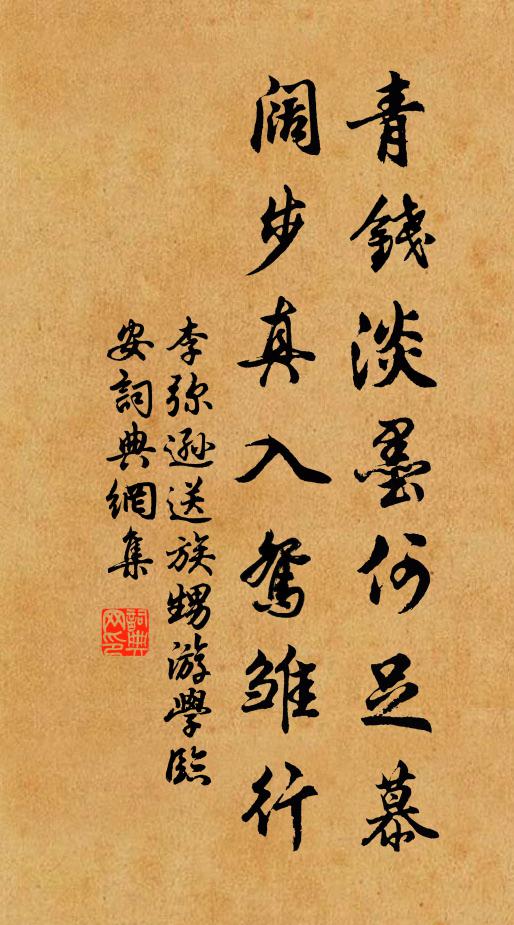 青錢淡墨何足慕
阔步真入鴛雏行
李弥遜送族甥游學臨
安詞典網集
詞典网印